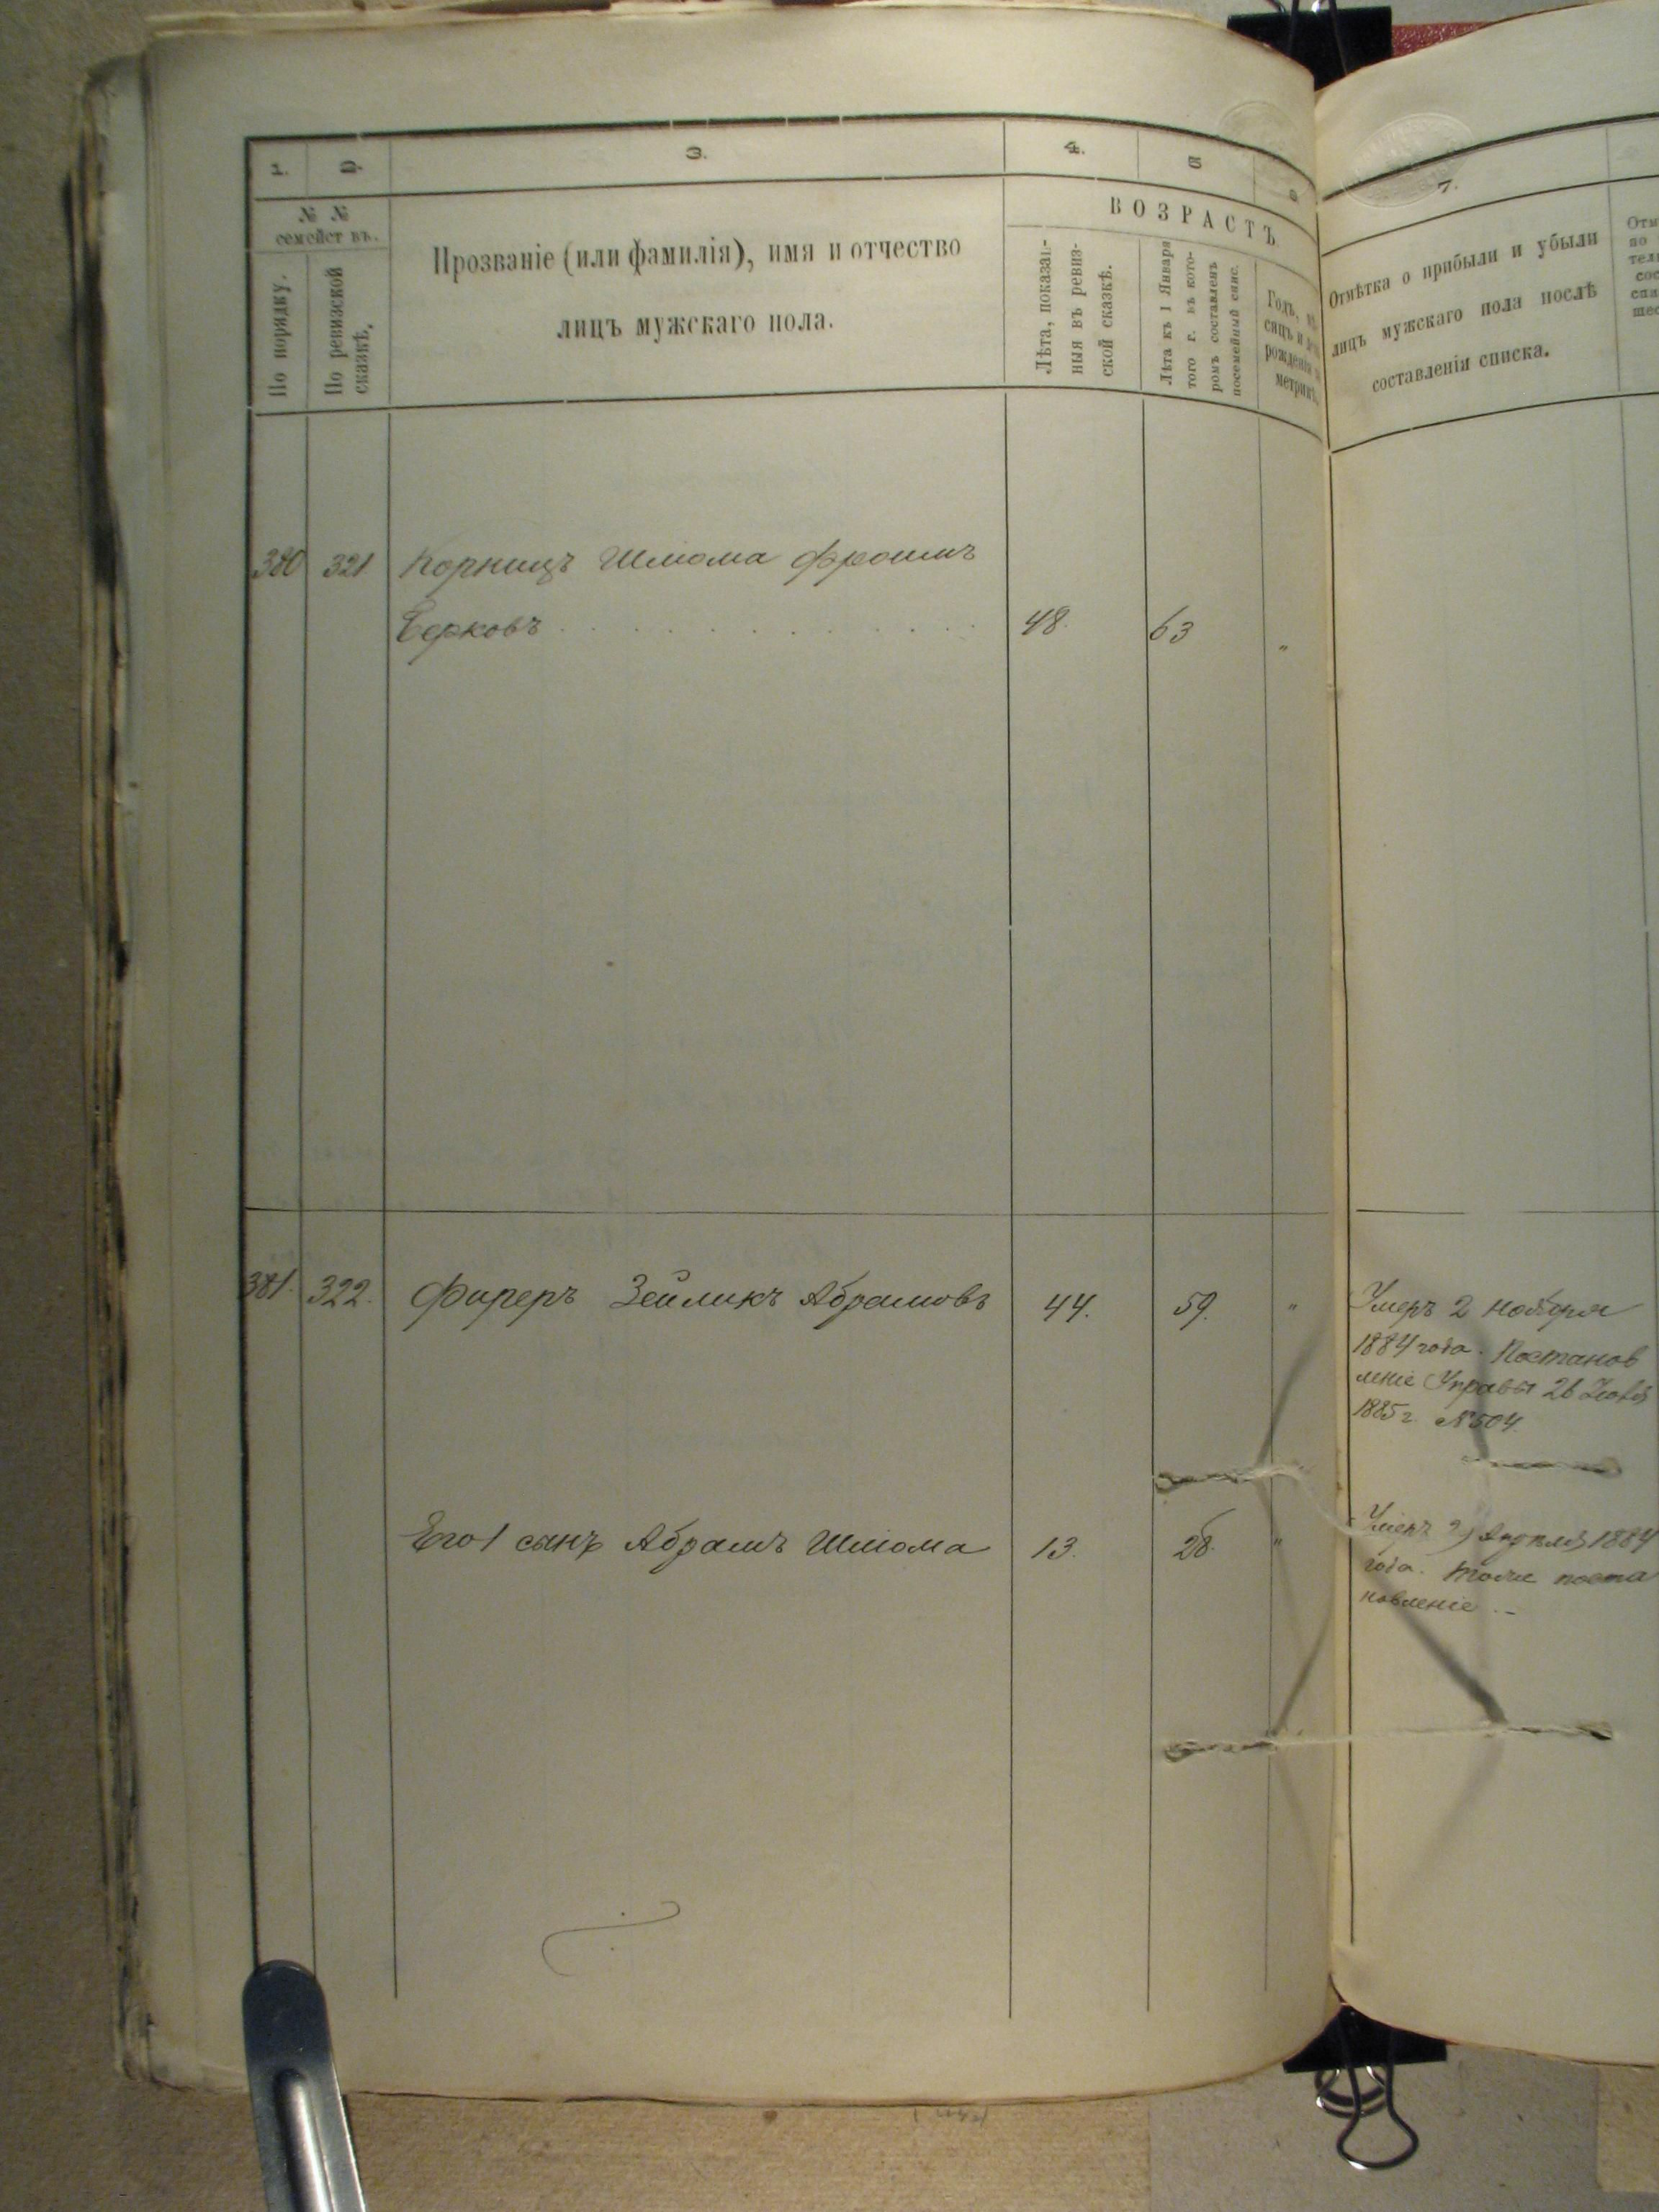 1. 2. 3. 4. 5 6
№ №
семействъ.
По порядку.
По ревизской
сказкѣ.
Прозваніе (или фамилія), имя и отчество
лицъ мужскаго пола.
ВОЗРАСТЪ
Лѣта, показан-
ныя въ ревиз-
ской сказкѣ.
Лѣта къ 1 Января
того г. въ кото-
ромъ составленъ
посемейный спис.
Годъ, мѣ
сяцъ и
рожденія
метрик
7.
Отмѣтка о прибыли и убыли
лицъ мужскаго пола послѣ
составленія списка.
380 321 Корницъ Шлиома Фроимъ
Берковъ 48. 63 "
381. 322. Фиреръ Зейликъ Абрамовъ 44. 59. "
Умеръ 2 ноября
1884 года. Постанов
леніе Управы 26
1885 г. №504
Его 1 сынъ Абрамъ Шлиома 13. 28. "
Умеръ Апрѣля 1884
года. Тоже поста
новленіе